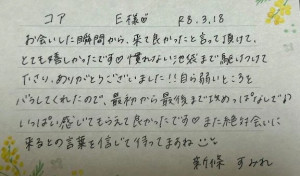 コア E様♡ R8.3.18
お会いした瞬間から、来て良かったと言って頂けて、
とても嬉しかったです♡慣れない池袋まで駆けつけて
下さり、ありがとうございました!!自ら弱いところを
バラしてくれたので、最初から最後まで攻めっぱなしで♪
いっぱい感じてもらえて良かったです♡また絶対会いに
来るとの言葉を信じて待ってますね
新條 すみれ